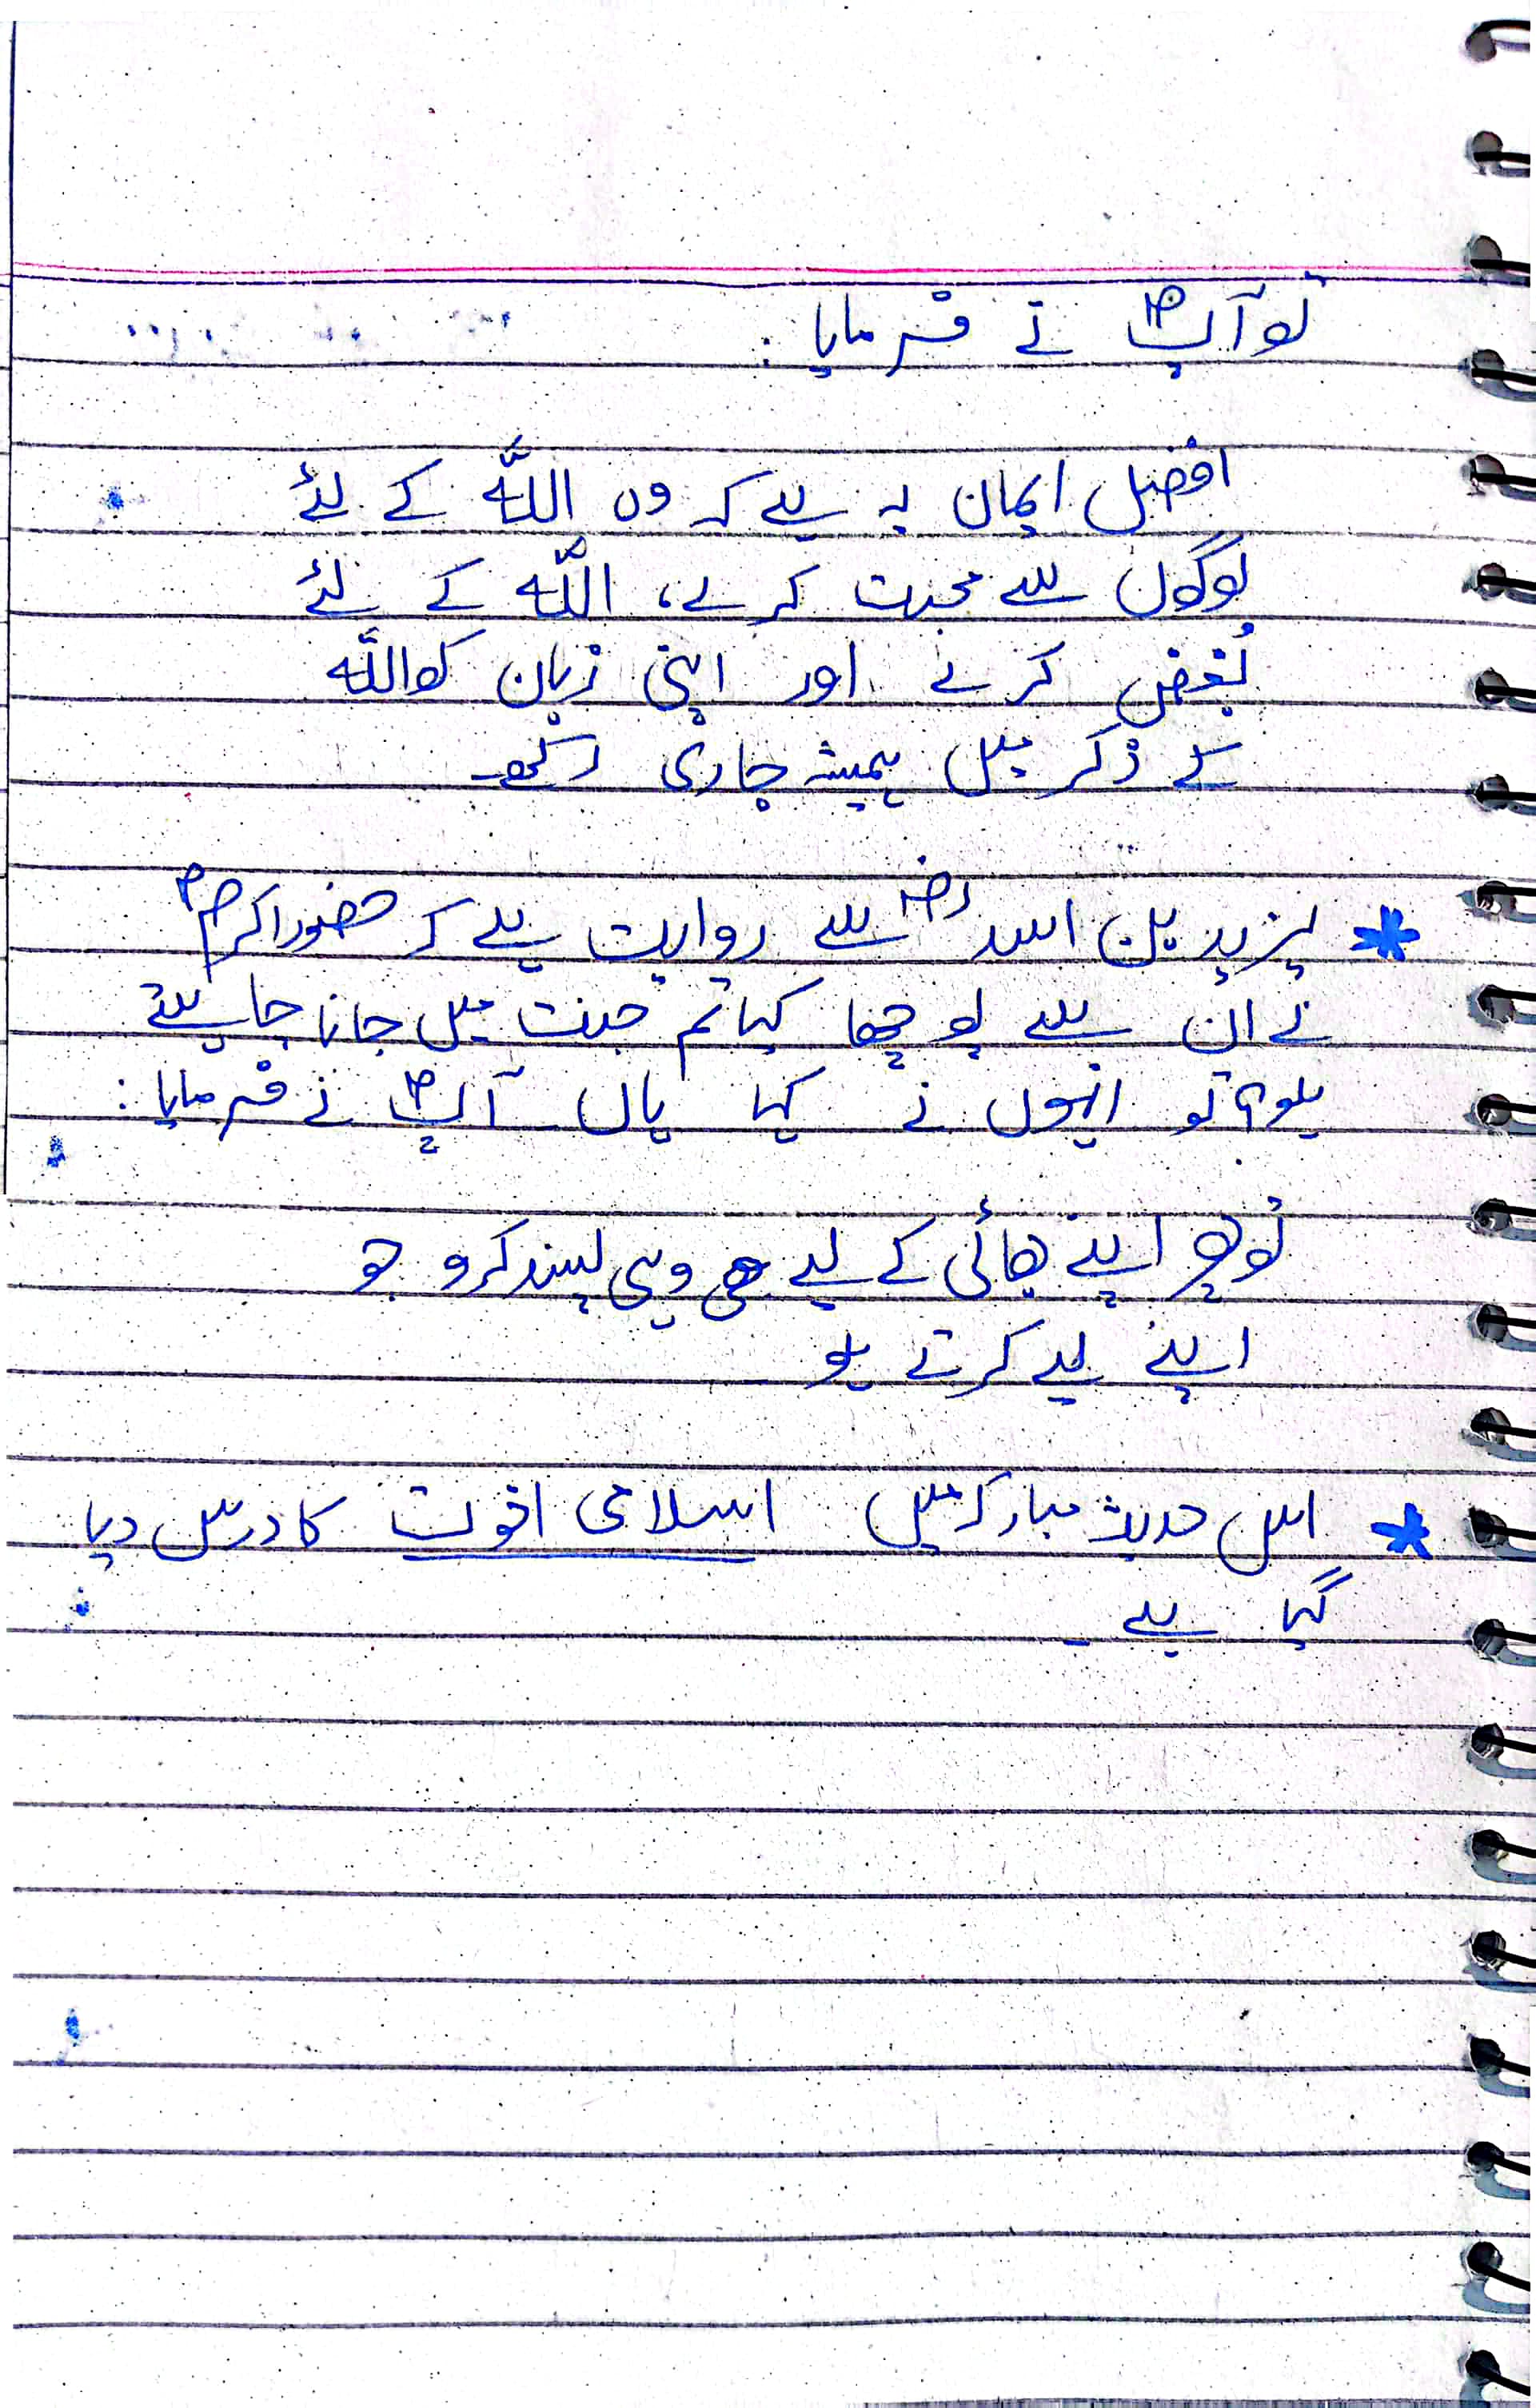 تو آپؐ نے فرمایا :
افضل ایمان یہ ہے کہ وہ اللّٰہ کے لئے
لوگوں سے محبت کرے، اللّٰہ کے لئے
بُغض کرے اور اپنی زبان کو اللّٰہ
کے ذکر میں ہمیشہ جاری رکھو۔
* یزید بن اسدؓ سے روایت ہے کہ حضور اکرمؐ
نے ان سے پوچھا کیا تم جنت میں جانا چاہتے
ہو؟ تو انہوں نے کہا ہاں۔ آپؐ نے فرمایا :
تو پھر اپنے بھائی کے لیے بھی وہی پسند کرو جو
اپنے لیے کرتے ہو
* اس حدیث مبارکہ میں اسلامی اخوت کا درس دیا
گیا ہے۔